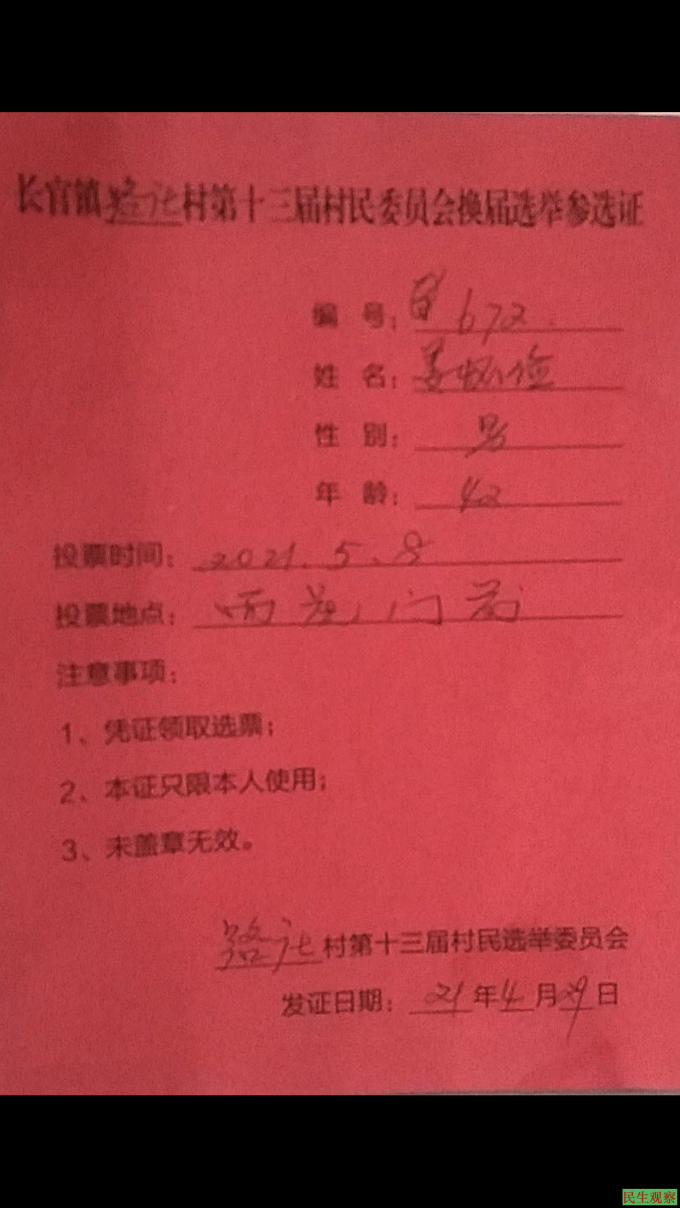 长官镇路讫村第十三届村民委员会换届选举参选证
编 号: 672
姓 名: 姜怀俭
性 别: 男
年 龄: 42
投票时间: 2021.5.8
投票地点: 门前
注意事项:
1、凭证领取选票;
2、本证只限本人使用;
3、未盖章无效。
路讫村第十三届村民选举委员会
发证日期: 21年4月29日
民生观察